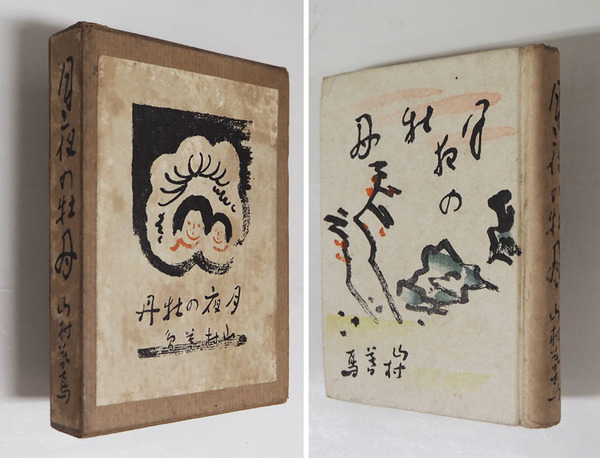 月夜の牡丹 山村暮鳥
月夜の牡丹
山村暮鳥
月
夜の
牡
丹
山村
暮
鳥
月夜の牡丹 山村暮鳥